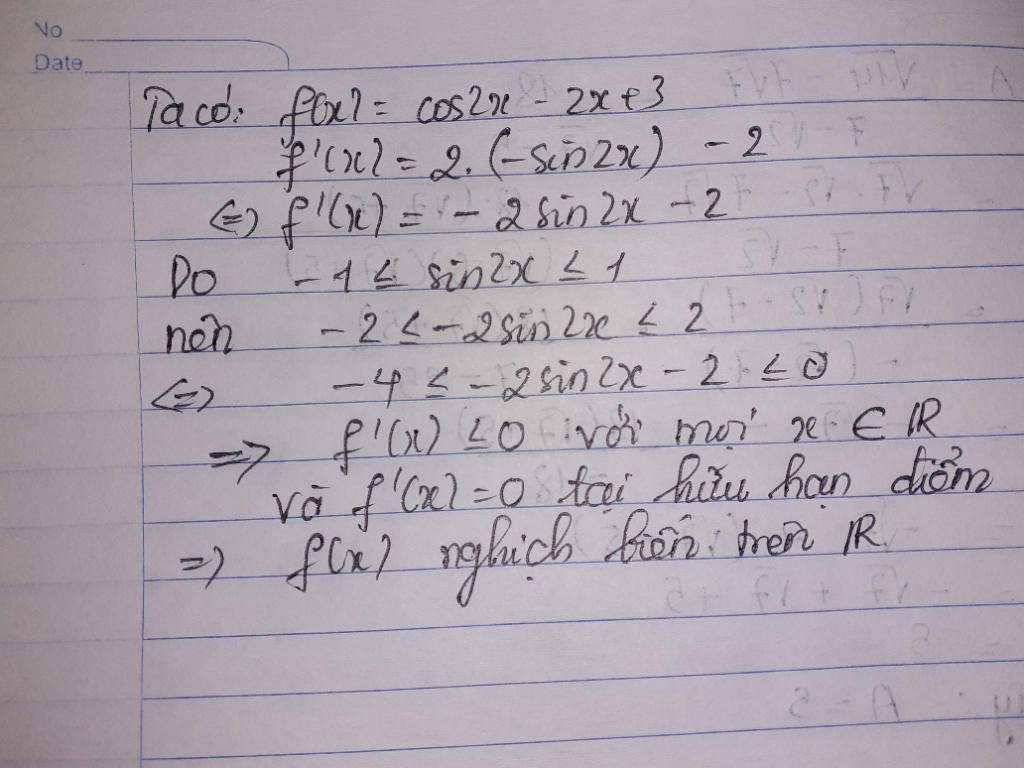 No
Date
Ta có: f(x) = cos2x - 2x + 3
f'(x) = 2. (-sin2x) - 2
<=> f'(x) = - 2 sin 2x - 2
Do - 1 ≤ sin2x ≤ 1
nên - 2 ≤ - 2sin2x ≤ 2
<=> - 4 ≤ - 2sin2x - 2 ≤ 0
=> f'(x) ≤ 0 với mọi x ∈ R
và f'(x) = 0 tại hữu hạn điểm
=> f(x) nghịch biến trên R